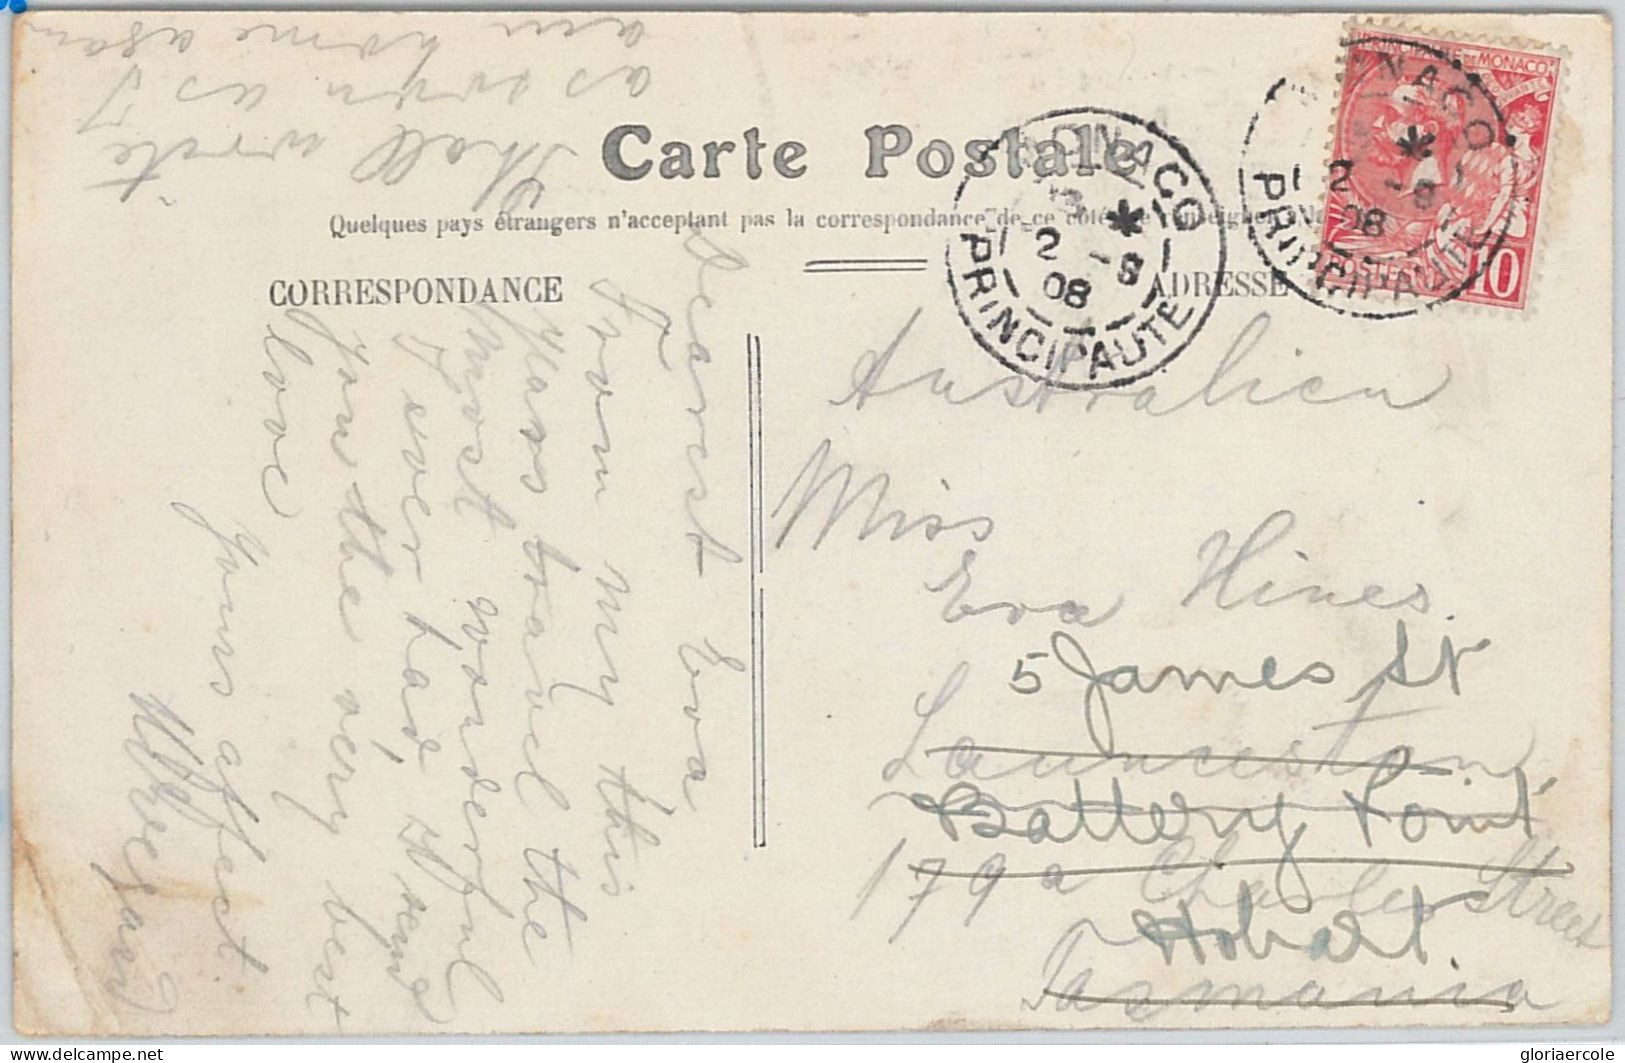 Carte Postale
Quelques pays étrangers n'acceptant pas la correspondance de ce côté, se renseigner
CORRESPONDANCE
ADRESSE
PRINCIPAUTÉ DE MONACO
POSTES
10
MONACO
2 - 8
08
PRINCIPAUTE
MONACO
2 - 8
08
PRINCIPAUTE
Dearest Eva
From my this
years travel the
most wonderful
I ever had, send
you the very best
love
Yours affect
Shall write
as soon as I
am home again
Australien
Miss
Eva Hines
5 James St
Launceston
Battery Point
179a Charles Street
Hobart.
Tasmania
gloriaercole